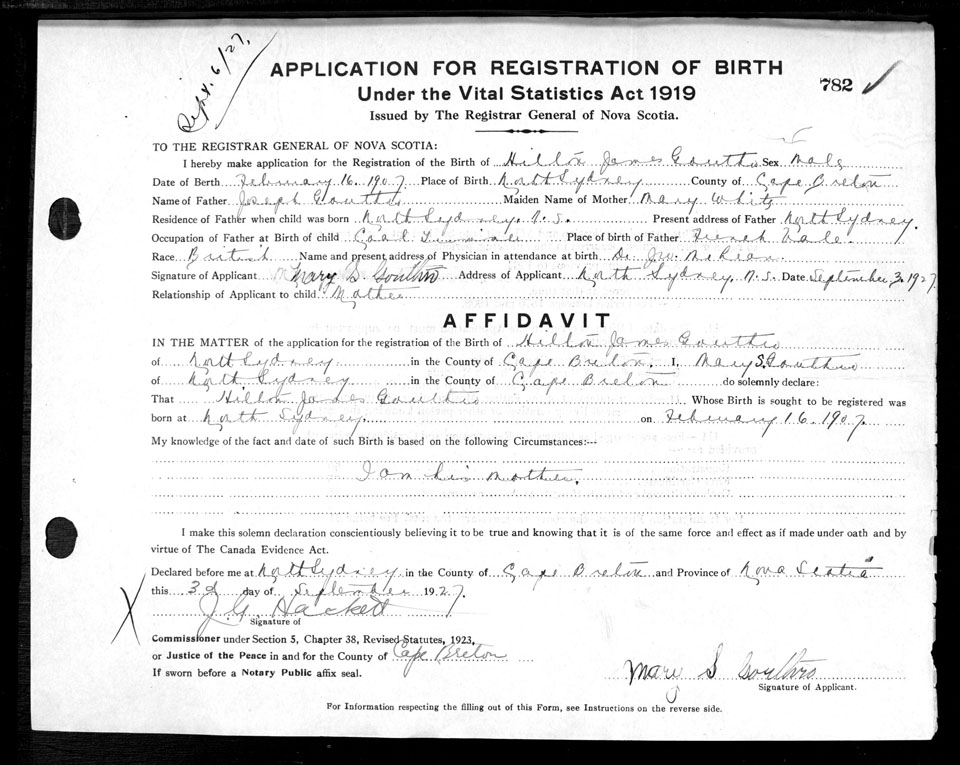 Sept. 6/27.
APPLICATION FOR REGISTRATION OF BIRTH
782
Under the Vital Statistics Act 1919
Issued by The Registrar General of Nova Scotia.
TO THE REGISTRAR GENERAL OF NOVA SCOTIA:
I hereby make application for the Registration of the Birth of Hilton James Gouthro Sex Male
Date of Berth February 16. 1907. Place of Birth North Sydney County of Cape Breton
Name of Father Joseph Gouthro Maiden Name of Mother Mary White
Residence of Father when child was born North Sydney, N.S. Present address of Father North Sydney.
Occupation of Father at Birth of child Coal Place of birth of Father French Vale.
Race British Name and present address of Physician in attendance at birth Dr. Jno. McLean
Signature of Applicant Mary S. Gouthro Address of Applicant North Sydney, N.S. Date September 3, 1927
Relationship of Applicant to child Mother
AFFIDAVIT
IN THE MATTER of the application for the registration of the Birth of Hilton James Gouthro
of North Sydney in the County of Cape Breton. I, Mary S. Gouthro
of North Sydney in the County of Cape Breton do solemnly declare:
That Hilton James Gouthro Whose Birth is sought to be registered was
born at North Sydney. on February 16. 1907.
My knowledge of the fact and date of such Birth is based on the following Circumstances:---
I am his mother.
I make this solemn declaration conscientiously believing it to be true and knowing that it is of the same force and effect as if made under oath and by
virtue of The Canada Evidence Act.
Declared before me at North Sydney. in the County of Cape Breton and Province of Nova Scotia
this 3d day of September 1927.
J. G. Hackett
Signature of
Commissioner under Section 5, Chapter 38, Revised Statutes, 1923,
or Justice of the Peace in and for the County of Cape Breton
If sworn before a Notary Public affix seal.
Mary S Gouthro
Signature of Applicant.
For Information respecting the filling out of this Form, see Instructions on the reverse side.